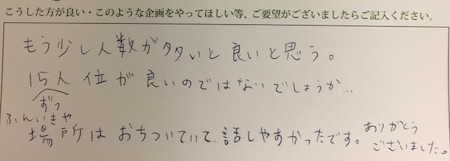 こうした方が良い・このような企画をやってほしい等、ご要望がございましたらご記入ください。
もう少し人数が多いと良いと思う。
15人位が良いのではないでしょうか…
ずつ
ふんいきや
場所はおちついていて、話しやすかったです。ありがとう
ございました。